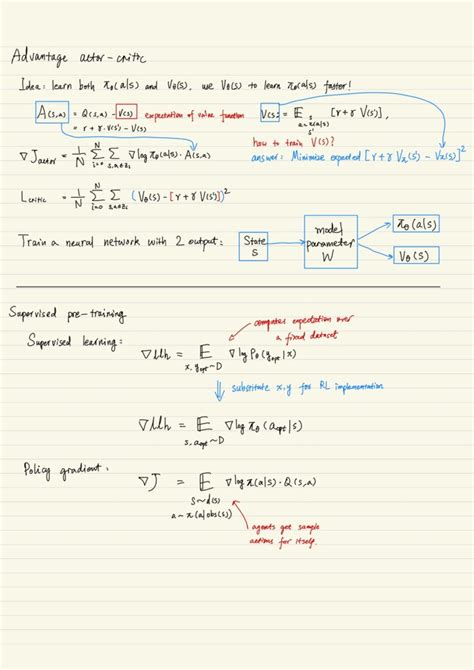 Advantage actor-critic
Idea: learn both πθ(a|s) and Vθ(s), use Vθ(s) to learn πθ(a|s) faster!
A(s,a) = Q(s,a) - V(s) expectation of value function
= r + γ·V(s') - V(s)
V(s) = 𝔼 [r + γ V(s')],
s
a~π(a|s)
s'
how to train V(s)?
answer: Minimize expected [r + γ Vπ(s') - Vπ(s)]²
∇J_actor = 1/N Σ_{i=0}^{N} Σ_{s,a∈z_i} ∇log πθ(a|s)·A(s,a)
L_critic = 1/N Σ_{i=0}^{N} Σ_{s,a∈z_i} (Vθ(s) - [r + γ V(s')])²
Train a neural network with 2 output:
State s
model parameter W
πθ(a|s)
Vθ(s)
Supervised pre-training
Supervised learning:
computes expectation over a fixed dataset
∇llh = 𝔼_{x, y_opt ~ D} ∇log Pθ(y_opt|x)
⇓ substitute x,y for RL implementation
∇llh = 𝔼_{s, a_opt ~ D} ∇log πθ(a_opt|s)
Policy gradient:
∇J = 𝔼 ∇log π(a|s)·Q(s,a)
s~d(s)
a~π(a|obs(s))
agents get sample
actions for itself.